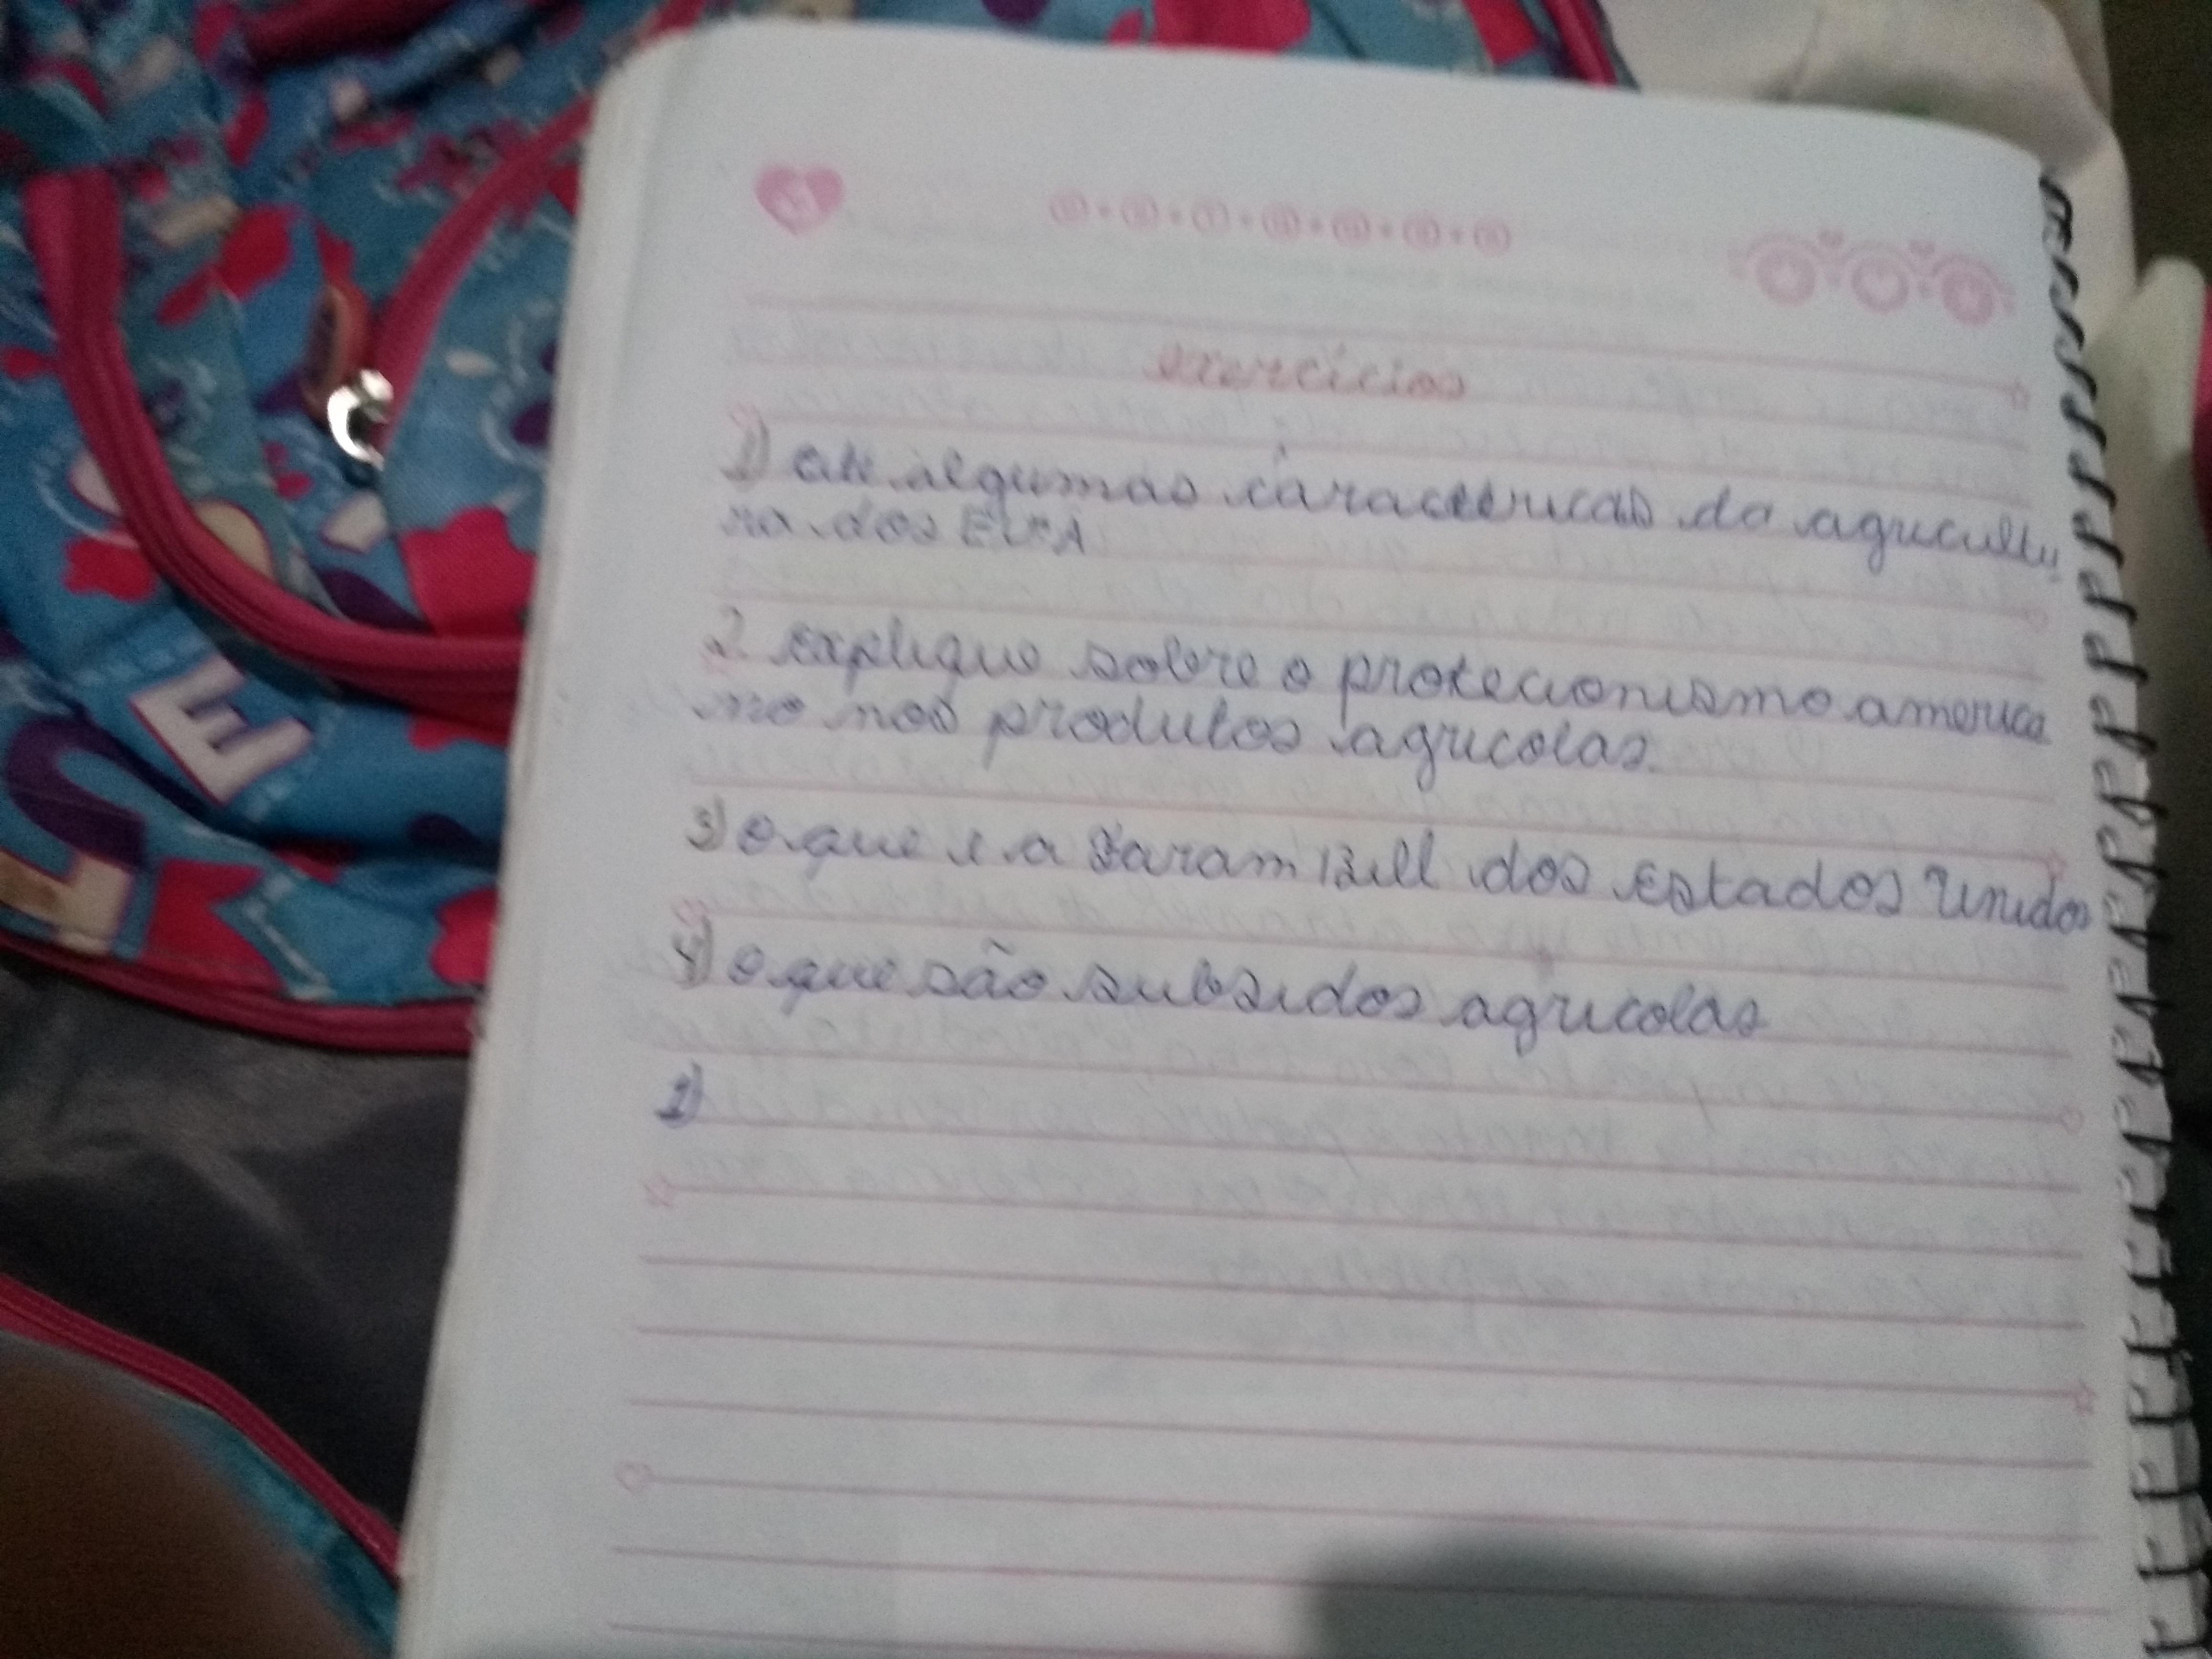 exercícios
1) cite algumas caracteristicas da agricultu
ra dos EUA
2 explique sobre o protecionismo america
no nos produtos agricolas.
3) o que e a Faram Bill dos estados Unidos
4) o que são subsidos agricolas
1)
E